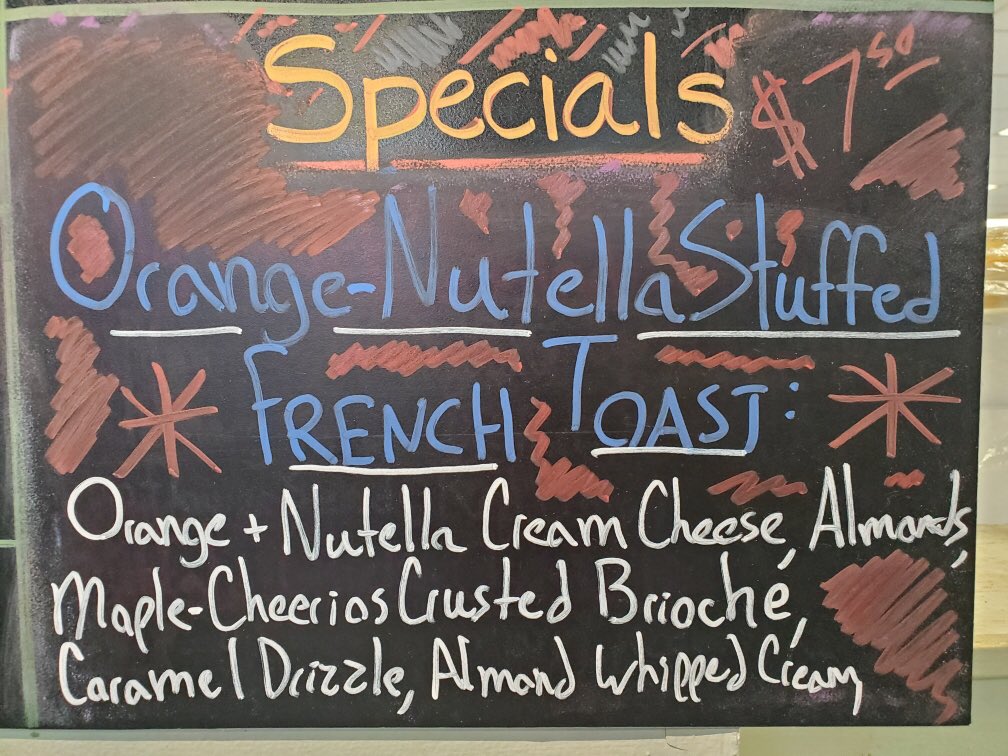 Specials $7 50
Orange-Nutella Stuffed
FRENCH TOAST:
Orange + Nutella Cream Cheese, Almonds,
Maple-Cheerios Crusted Brioché,
Caramel Drizzle, Almond Whipped Cream